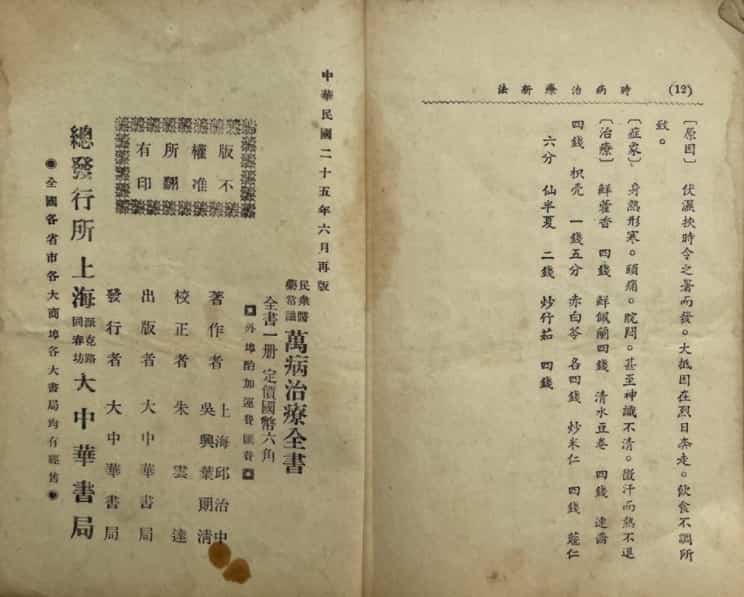 (12) 時病治療新法
〔原因〕 伏濕挾時令之暑而發。大抵因在烈日奔走。飲食不調所
致。
〔症象〕 身熱形寒。頭痛。脘悶。甚至神識不清。微汗而熱不退
〔治療〕 鮮藿香 四錢 鮮佩蘭四錢 清水豆卷 四錢 連喬
四錢 枳壳 一錢五分 赤白苓 各四錢 炒米仁 四錢 蔻仁
六分 仙半夏 二錢 炒竹茹 四錢
中華民國二十五年六月再版
民衆醫
藥常識
萬病治療全書
全書一册 定價國幣六角
外埠酌加運費匯費
版權所有
不准翻印
著作者 上海邱治中
吳興葉朗清
校正者 朱雲達
出版者 大中華書局
發行者 大中華書局
總發行所 上海 派克路 同春坊 大中華書局
全國各省市各大商埠各大書局均有經售